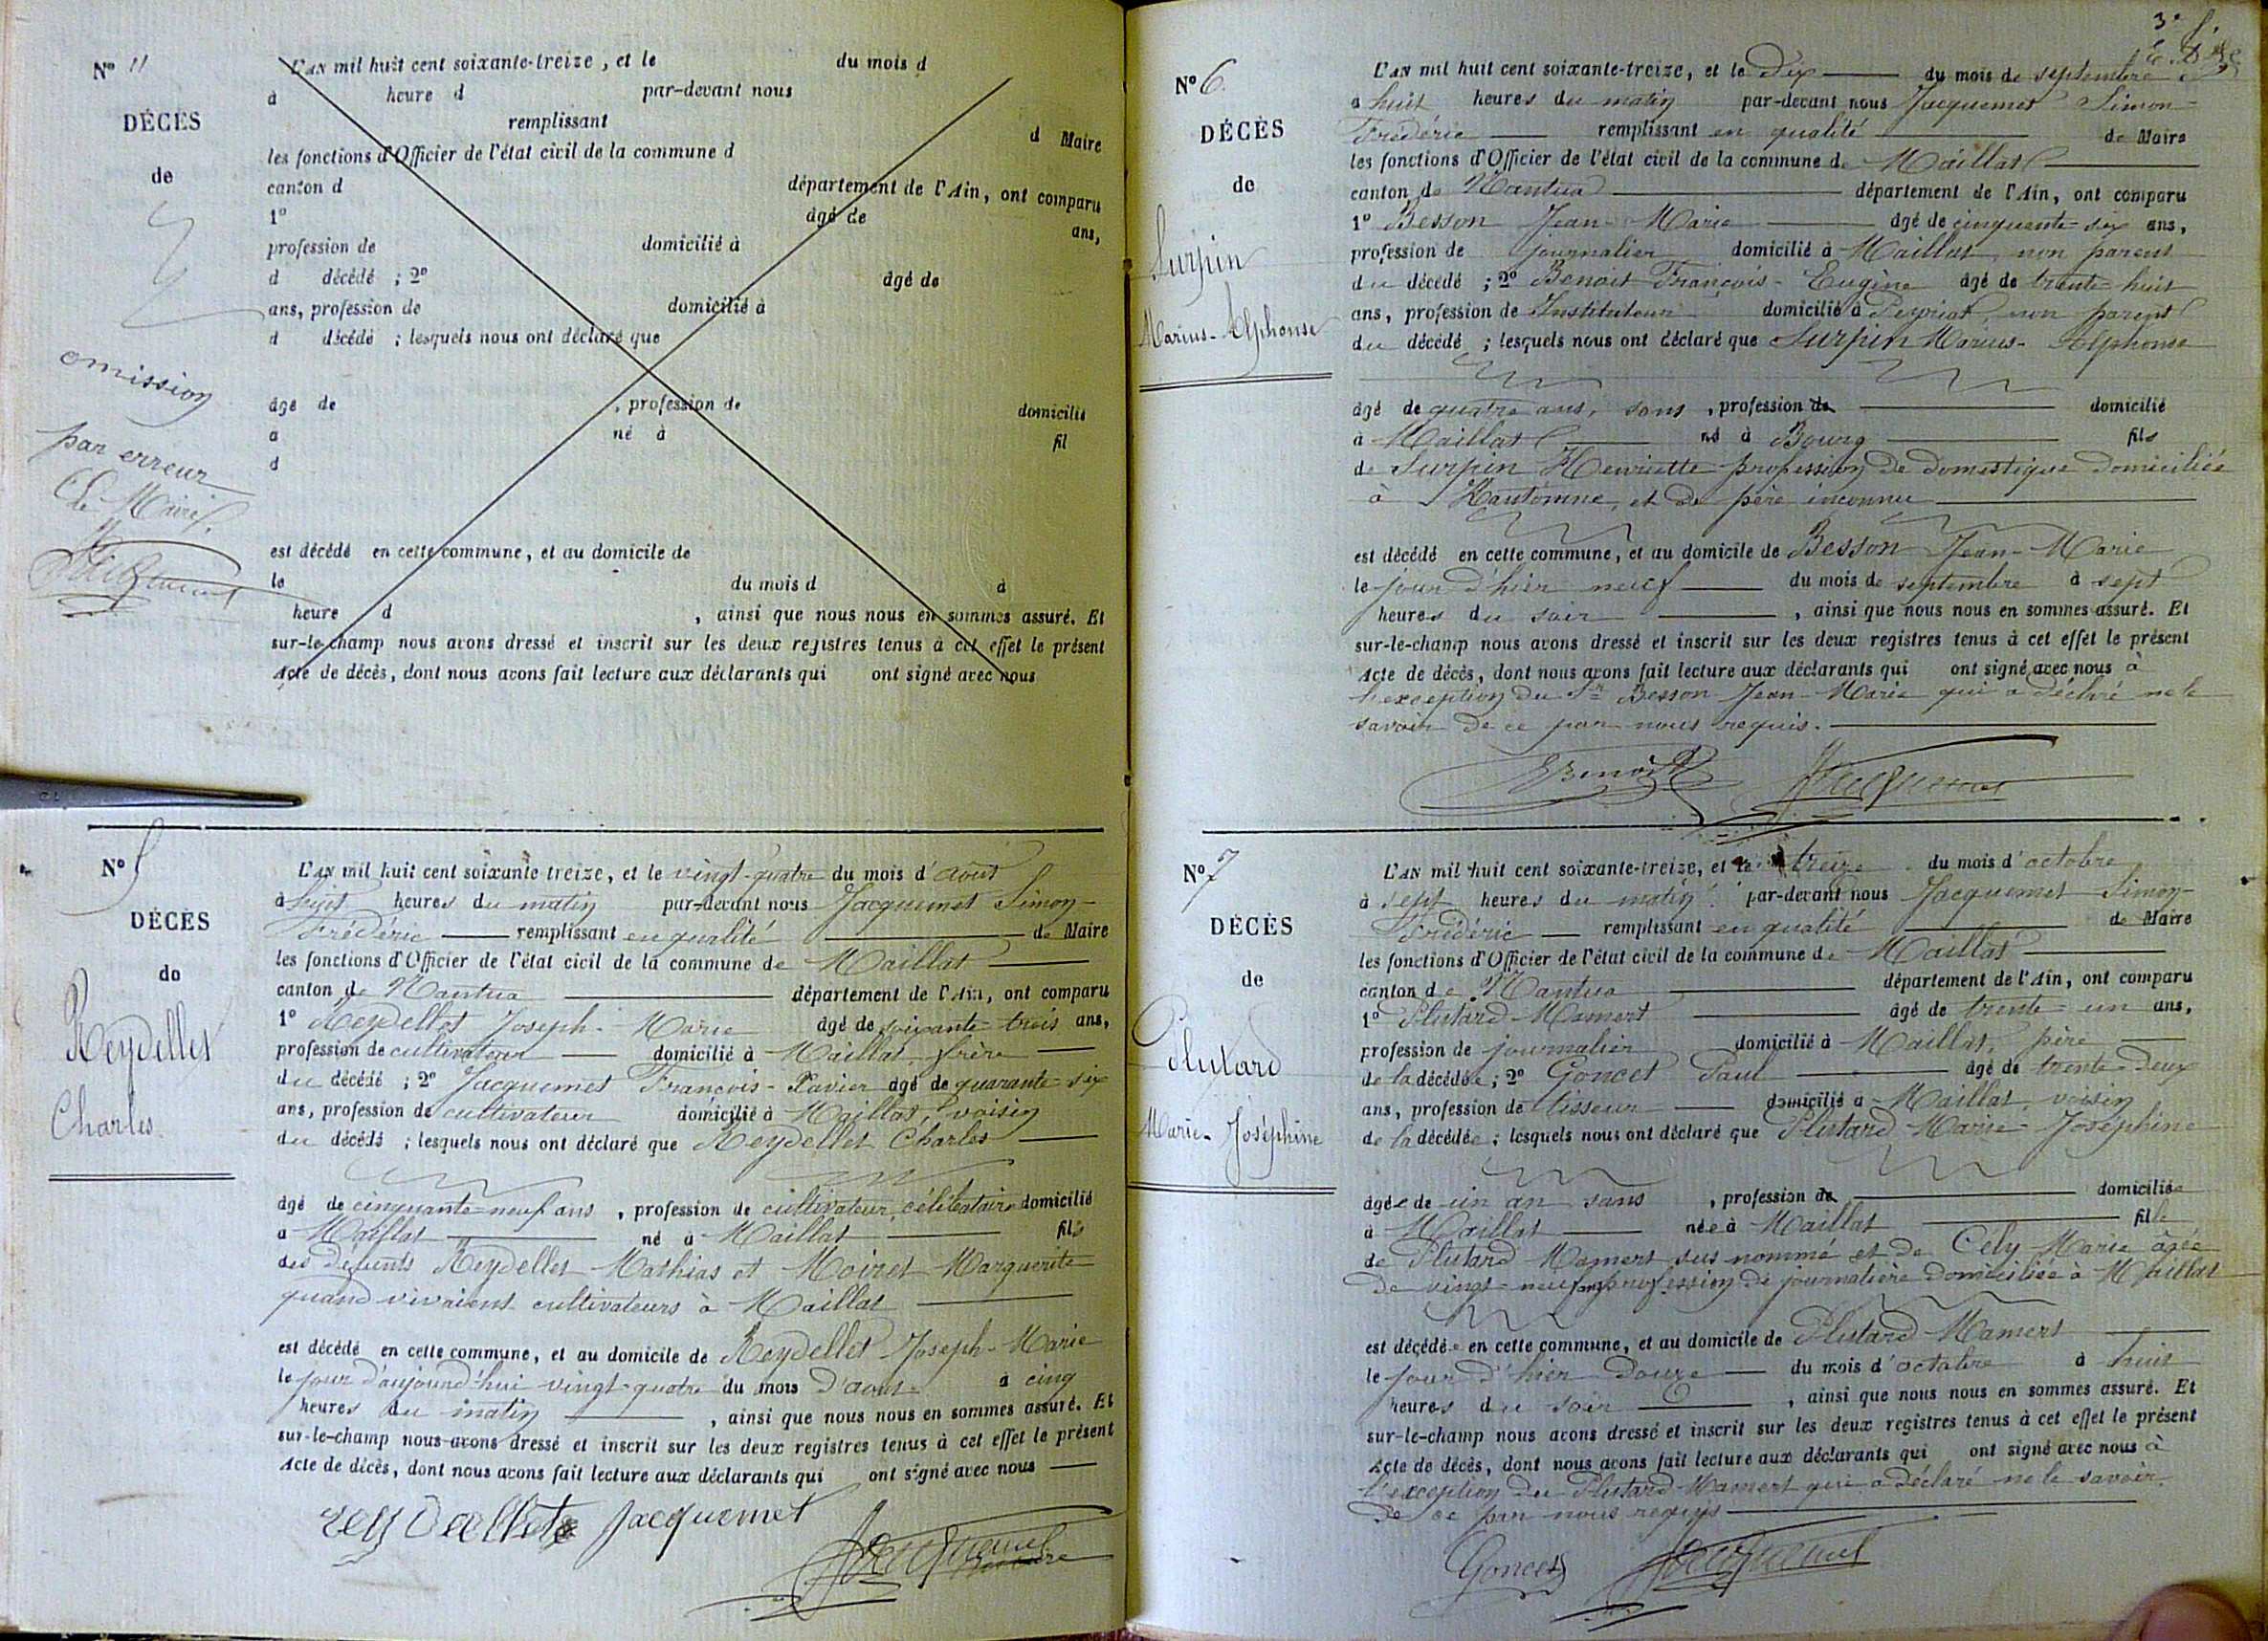 N° 11
DÉCÈS
de
omission
par erreur
Le Maire
Jacquemet
L'AN mil huit cent soixante-treize, et le du mois d
à heure d par-devant nous
remplissant d Maire
les fonctions d'Officier de l'état civil de la commune d
canton d département de l'Ain, ont comparu
1° âgé de ans,
profession de domicilié à
d décédé ; 2° âgé de
ans, profession de domicilié à
d décédé ; lesquels nous ont déclaré que
âgé de , profession de domicilié
à né à fil
d
est décédé en cette commune, et au domicile de
le du mois d à
heure d , ainsi que nous nous en sommes assuré. Et
sur-le-champ nous avons dressé et inscrit sur les deux registres tenus à cet effet le présent
Acte de décès, dont nous avons fait lecture aux déclarants qui ont signé avec nous
N° 5
DÉCÈS
de
Reydellet
Charles
L'AN mil huit cent soixante treize, et le vingt-quatre du mois d'août
à huit heures du matin par-devant nous Jacquemet Simon-
Frédéric remplissant en qualité de Maire
les fonctions d'Officier de l'état civil de la commune de Maillat
canton de Nantua département de l'Ain, ont comparu
1° Reydellet Joseph-Marie âgé de soixante-trois ans,
profession de cultivateur domicilié à Maillat, frère
du décédé ; 2° Jacquemet François-Xavier âgé de quarante-six
ans, profession de cultivateur domicilié à Maillat, voisin
du décédé ; lesquels nous ont déclaré que Reydellet Charles
âgé de cinquante-neuf ans , profession de cultivateur, célibataire domicilié
à Maillat né à Maillat fils
des défunts Reydellet Mathias et Moiret Marguerite
quand vivaient cultivateurs à Maillat
est décédé en cette commune, et au domicile de Reydellet Joseph-Marie
le jour d'aujourd'hui vingt-quatre du mois d'août à cinq
heures du matin , ainsi que nous nous en sommes assuré. Et
sur-le-champ nous avons dressé et inscrit sur les deux registres tenus à cet effet le présent
Acte de décès, dont nous avons fait lecture aux déclarants qui ont signé avec nous
reydellet Jacquemet
Jacquemet
3e f.
N° 6.
DÉCÈS
de
Surpin
Marius-Alphonse
L'AN mil huit cent soixante-treize, et le dix du mois de septembre
à huit heures du matin par-devant nous Jacquemet Simon-
Frédéric remplissant en qualité de Maire
les fonctions d'Officier de l'état civil de la commune de Maillat
canton de Nantua département de l'Ain, ont comparu
1° Besson Jean-Marie âgé de cinquante-six ans,
profession de journalier domicilié à Maillat, non parent
du décédé ; 2° Benoit François-Eugène âgé de trente-huit
ans, profession de Instituteur domicilié à Peyriat, non parent
du décédé ; lesquels nous ont déclaré que Surpin Marius-Alphonse
âgé de quatre ans, sans , profession de domicilié
à Maillat né à Bourg fils
de Surpin Henriette profession de domestique domiciliée
à et de père inconnu
est décédé en cette commune, et au domicile de Besson Jean-Marie
le jour d'hier neuf du mois de septembre à sept
heures du soir , ainsi que nous nous en sommes assuré. Et
sur-le-champ nous avons dressé et inscrit sur les deux registres tenus à cet effet le présent
Acte de décès, dont nous avons fait lecture aux déclarants qui ont signé avec nous à
l'exception du Sr Besson Jean-Marie qui a déclaré ne le
savoir de ce par nous requis.
EBenoit Jacquemet
N° 7
DÉCÈS
de
Plutard
Marie-Joséphine
L'AN mil huit cent soixante-treize, et le treize du mois d'octobre
à sept heures du matin par-devant nous Jacquemet Simon-
Frédéric remplissant en qualité de Maire
les fonctions d'Officier de l'état civil de la commune de Maillat
canton de Nantua département de l'Ain, ont comparu
1° Plutard Mamert âgé de trente-un ans,
profession de journalier domicilié à Maillat, père
de la décédée ; 2° Goncet Paul âgé de trente-deux
ans, profession de tisseur domicilié à Maillat, voisin
de la décédée ; lesquels nous ont déclaré que Plutard Marie-Joséphine
âgée de un an sans , profession de domiciliée
à Maillat née à Maillat fille
de Plutard Mamert sus-nommé et de Cély Marie âgée
de vingt-neuf ans profession de journalière domiciliée à Maillat
est décédée en cette commune, et au domicile de Plutard Mamert
le jour d'hier douze du mois d'octobre à huit
heures du soir , ainsi que nous nous en sommes assuré. Et
sur-le-champ nous avons dressé et inscrit sur les deux registres tenus à cet effet le présent
Acte de décès, dont nous avons fait lecture aux déclarants qui ont signé avec nous à
l'exception du Plutard Mamert qui a déclaré ne le savoir
de ce par nous requis
Goncet Jacquemet